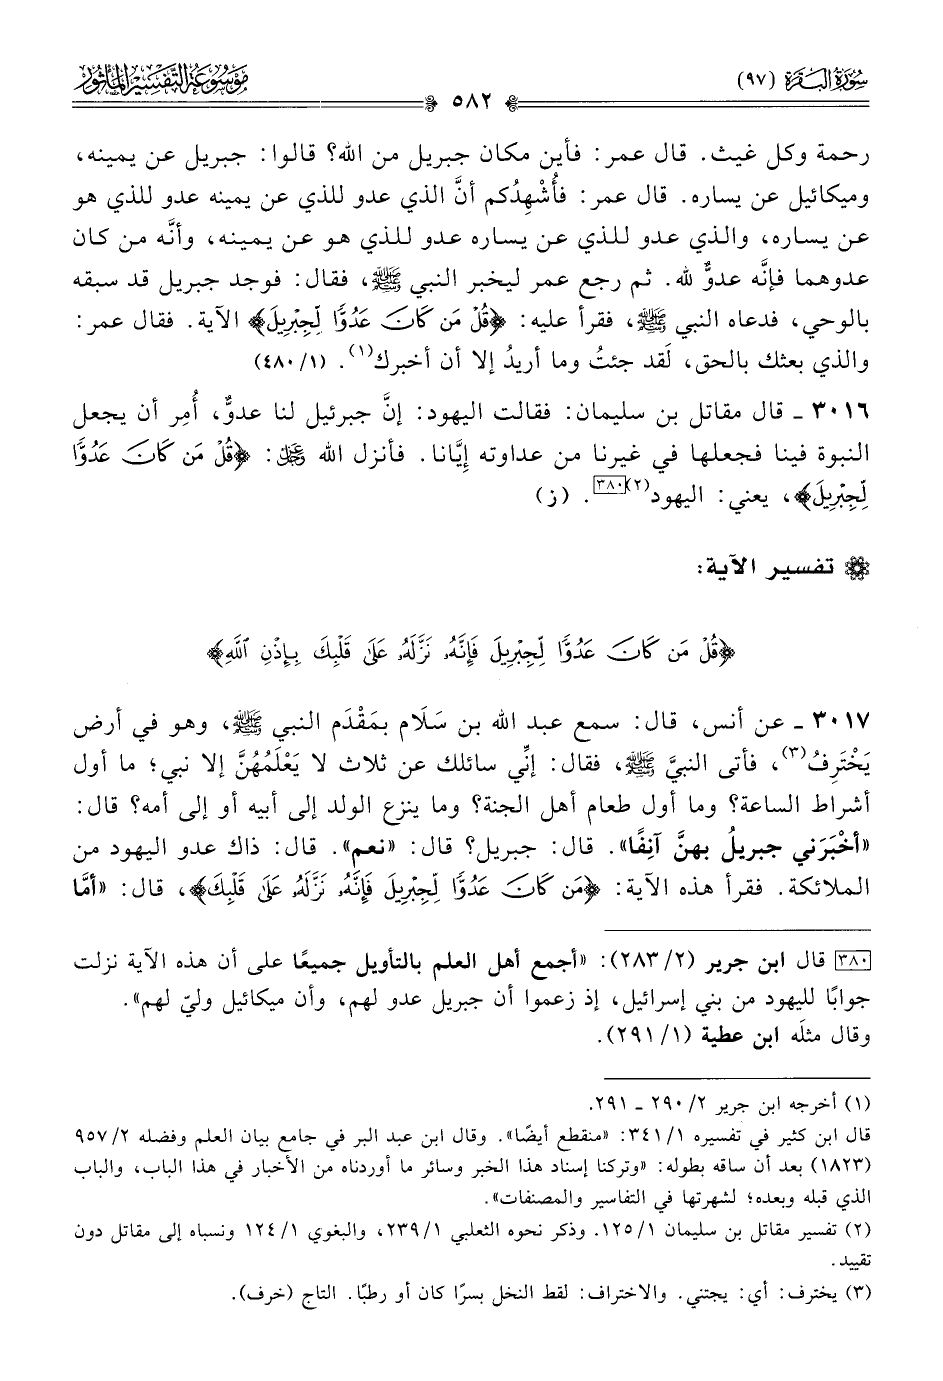 سورة البقرة (٩٧)
موسوعة التفسير المأثور
٥٨٢
رحمة وكل غيث. قال عمر: فأين مكان جبريل من الله؟ قالوا: جبريل عن يمينه،
وميكائيل عن يساره. قال عمر: فأُشْهِدُكم أنَّ الذي عدو للذي عن يمينه عدو للذي هو
عن يساره، والذي عدو للذي عن يساره عدو للذي هو عن يمينه، وأنَّه من كان
عدوهما فإنَّه عدوٌّ لله. ثم رجع عمر ليخبر النبي ﷺ، فقال: فوجد جبريل قد سبقه
بالوحي، فدعاه النبي ﷺ، فقرأ عليه: ﴿قُلْ مَن كَانَ عَدُوًّا لِّجِبْرِيلَ﴾ الآية. فقال عمر:
والذي بعثك بالحق، لَقد جئتُ وما أريدُ إلا أن أخبرك(١). (١/ ٤٨٠)
٣٠١٦ ـ قال مقاتل بن سليمان: فقالت اليهود: إنَّ جبرئيل لنا عدوٌّ، أُمِر أن يجعل
النبوة فينا فجعلها في غيرنا من عداوته إيَّانا. فأنزل الله ﷿: ﴿قُلْ مَن كَانَ عَدُوًّا
لِّجِبْرِيلَ﴾، يعني: اليهود(٢)[٣٨٠]. (ز)
تفسير الآية:
﴿قُلْ مَن كَانَ عَدُوًّا لِّجِبْرِيلَ فَإِنَّهُۥ نَزَّلَهُۥ عَلَىٰ قَلْبِكَ بِإِذْنِ ٱللَّهِ﴾
٣٠١٧ ـ عن أنس، قال: سمع عبد الله بن سَلَام بمَقْدَم النبي ﷺ، وهو في أرض
يَخْتَرِفُ(٣)، فأتى النبيَّ ﷺ، فقال: إنِّي سائلك عن ثلاث لا يَعْلَمُهُنَّ إلا نبي؛ ما أول
أشراط الساعة؟ وما أول طعام أهل الجنة؟ وما ينزع الولد إلى أبيه أو إلى أمه؟ قال:
«أخْبَرَني جبريلُ بهنَّ آنِفًا». قال: جبريل؟ قال: «نعم». قال: ذاك عدو اليهود من
الملائكة. فقرأ هذه الآية: ﴿مَن كَانَ عَدُوًّا لِّجِبْرِيلَ فَإِنَّهُۥ نَزَّلَهُۥ عَلَىٰ قَلْبِكَ﴾، قال: «أمَّا
[٣٨٠] قال ابن جرير (٢/ ٢٨٣): «أجمع أهل العلم بالتأويل جميعًا على أن هذه الآية نزلت
جوابًا لليهود من بني إسرائيل، إذ زعموا أن جبريل عدو لهم، وأن ميكائيل وليّ لهم».
وقال مثلَه ابن عطية (١/ ٢٩١).
(١) أخرجه ابن جرير ٢/ ٢٩٠ ـ ٢٩١.
قال ابن كثير في تفسيره ١/ ٣٤١: «منقطع أيضًا». وقال ابن عبد البر في جامع بيان العلم وفضله ٢/ ٩٥٧
(١٨٢٣) بعد أن ساقه بطوله: «وتركنا إسناد هذا الخبر وسائر ما أوردناه من الأخبار في هذا الباب، والباب
الذي قبله وبعده؛ لشهرتها في التفاسير والمصنفات».
(٢) تفسير مقاتل بن سليمان ١/ ١٢٥. وذكر نحوه الثعلبي ١/ ٢٣٩، والبغوي ١/ ١٢٤ ونسباه إلى مقاتل دون
تقييد.
(٣) يخترف: أي: يجتني. والاختراف: لقط النخل بسرًا كان أو رطبًا. التاج (خرف).